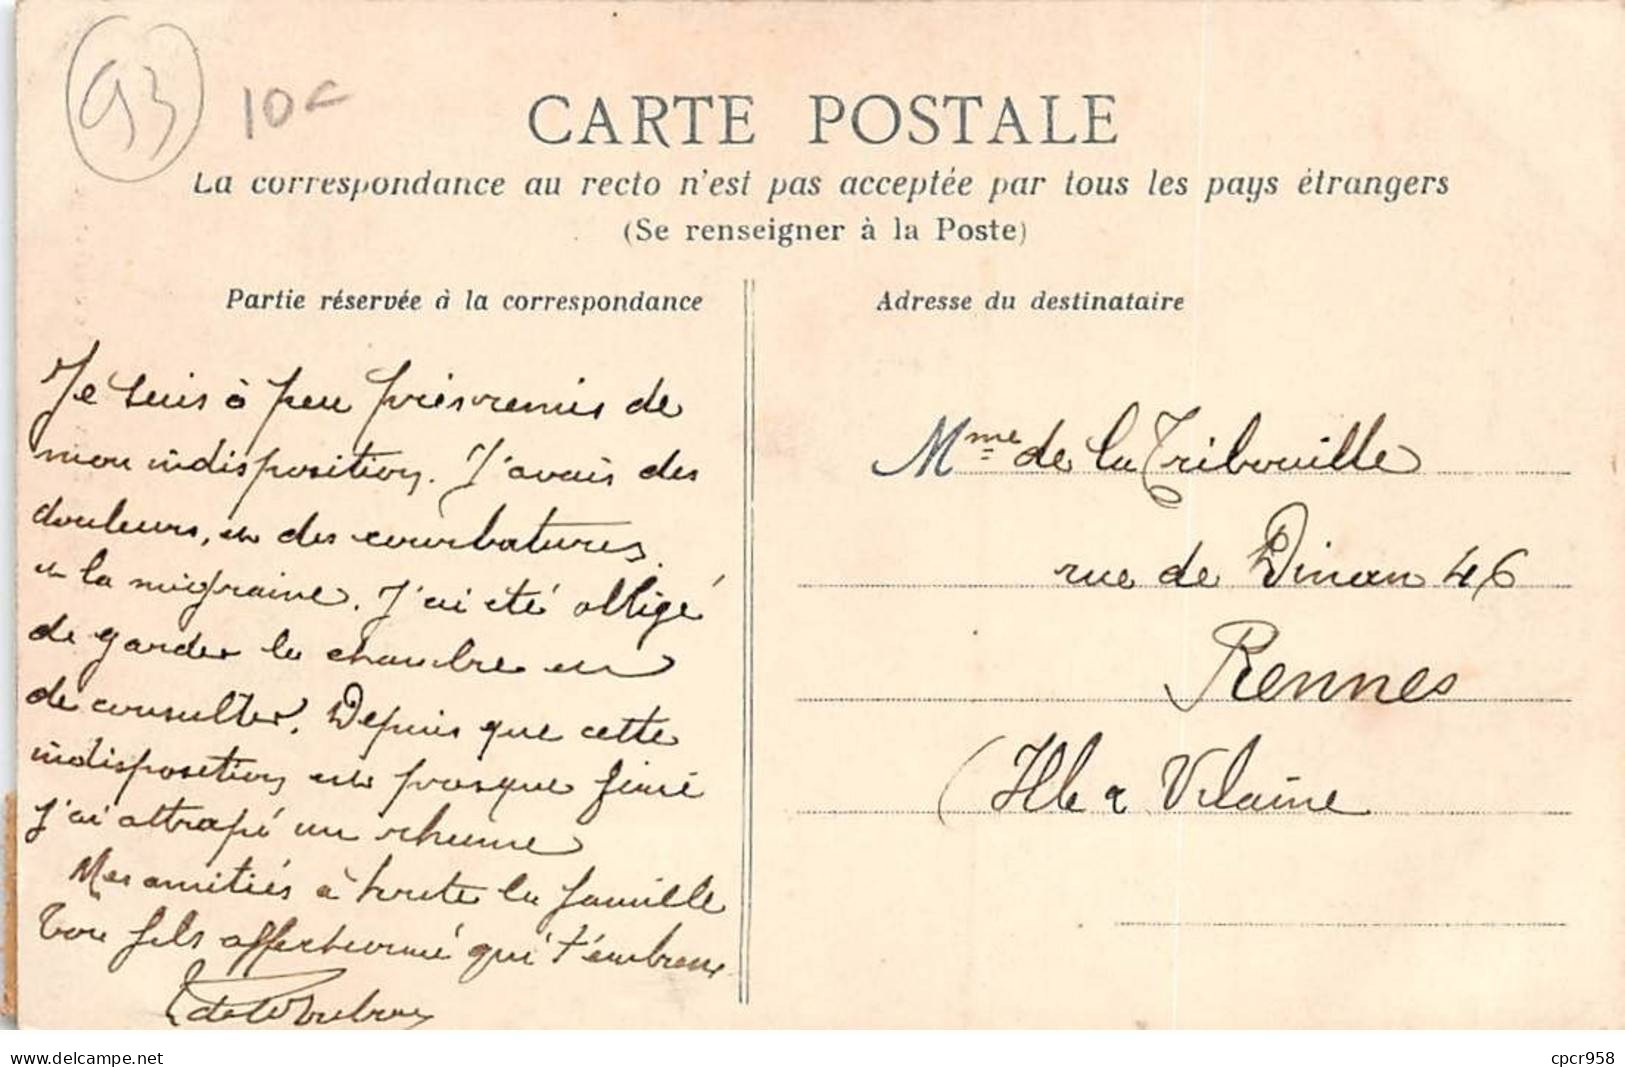 93
10
CARTE POSTALE
La correspondance au recto n'est pas acceptée par tous les pays étrangers
(Se renseigner à la Poste)
Partie réservée à la correspondance
Je suis à peu près remis de
mon indisposition. J'avais des
douleurs, et des courbatures
et la migraine. J'ai été obligé
de garder la chambre et
de consulter. Depuis que cette
indisposition est presque finie
j'ai attrapé un rhume
Mes amitiés à toute la famille
Ton fils affectionné qui t'embrasse
Adresse du destinataire
Mme de la Tribouille
rue de Dinan 46
Rennes
(Ille & Vilaine
www.delcampe.net
cpcr958